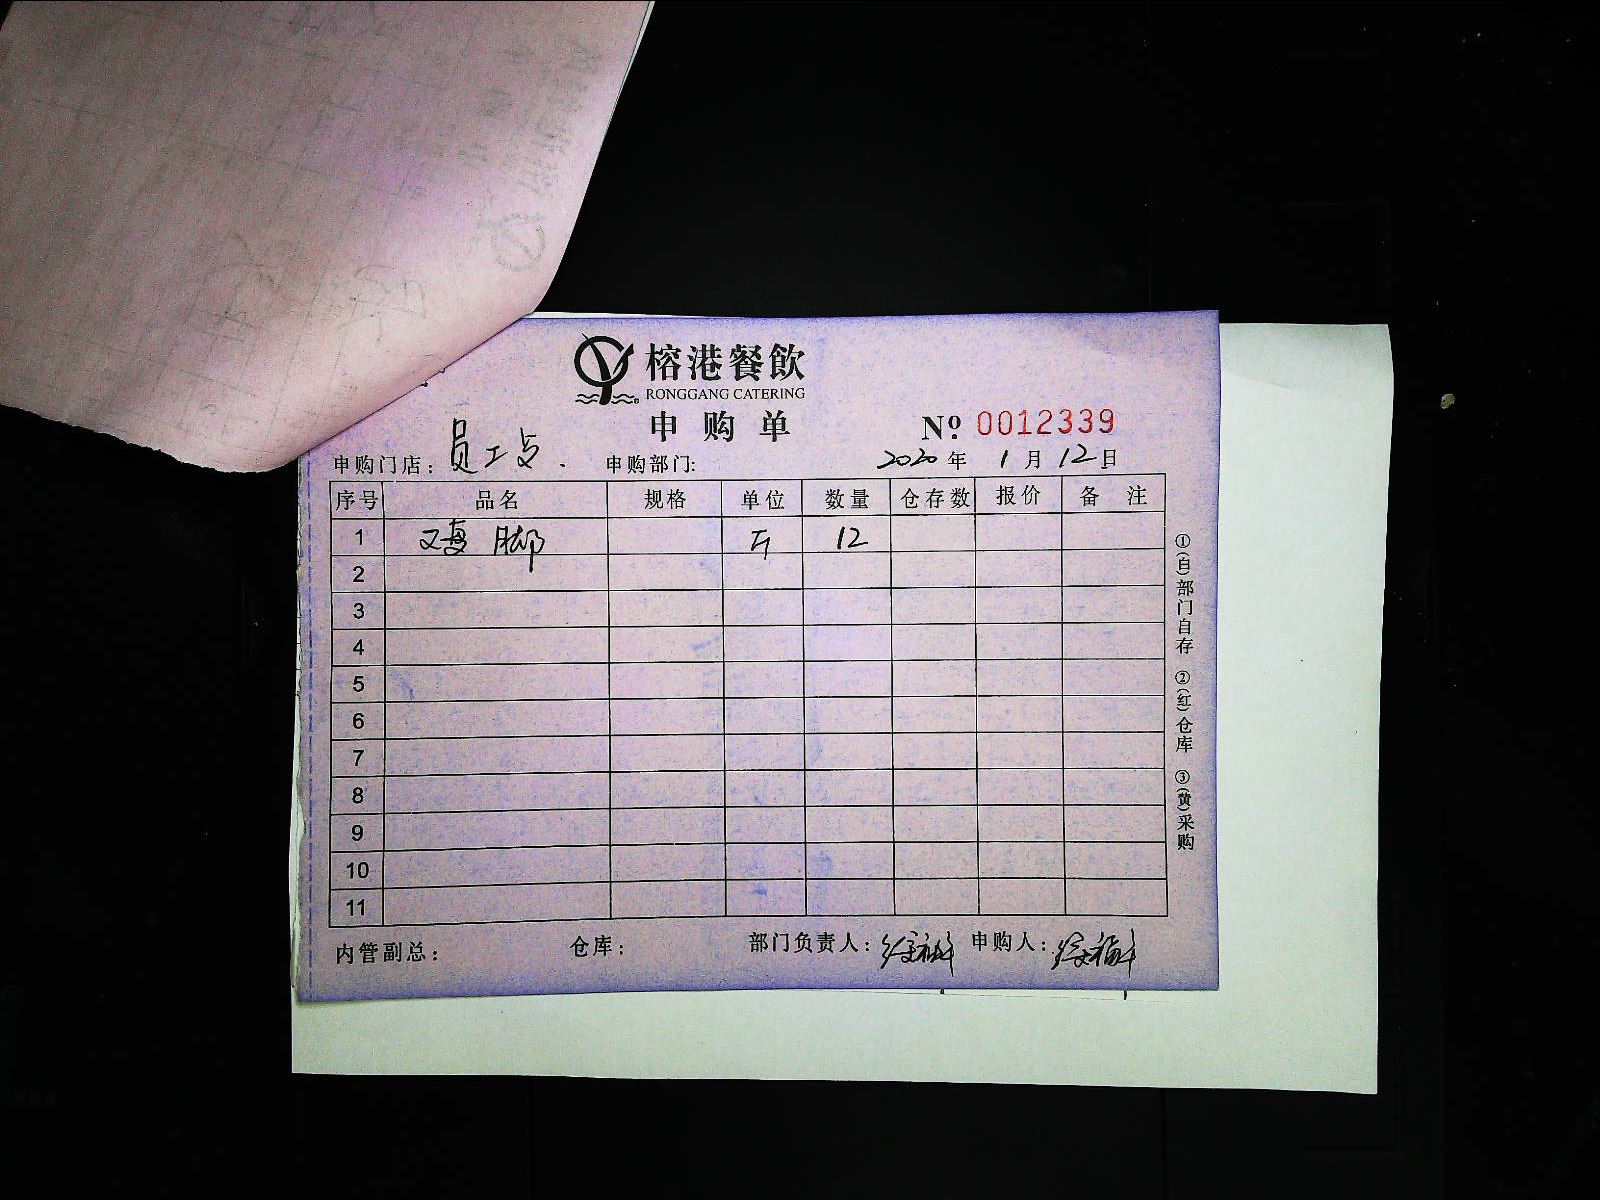 榕港餐飲
RONGGANG CATERING
申购单
№ 0012339
申购门店： 员工与. 申购部门: 2020年 1月 12日
序号 品名 规格 单位 数量 仓存数 报价 备 注
1 脚 斤 12
2
3
4
5
6
7
8
9
10
11
①(自)部门自存 ②(红)仓库 ③(黄)采购
内管副总： 仓库： 部门负责人： 申购人：